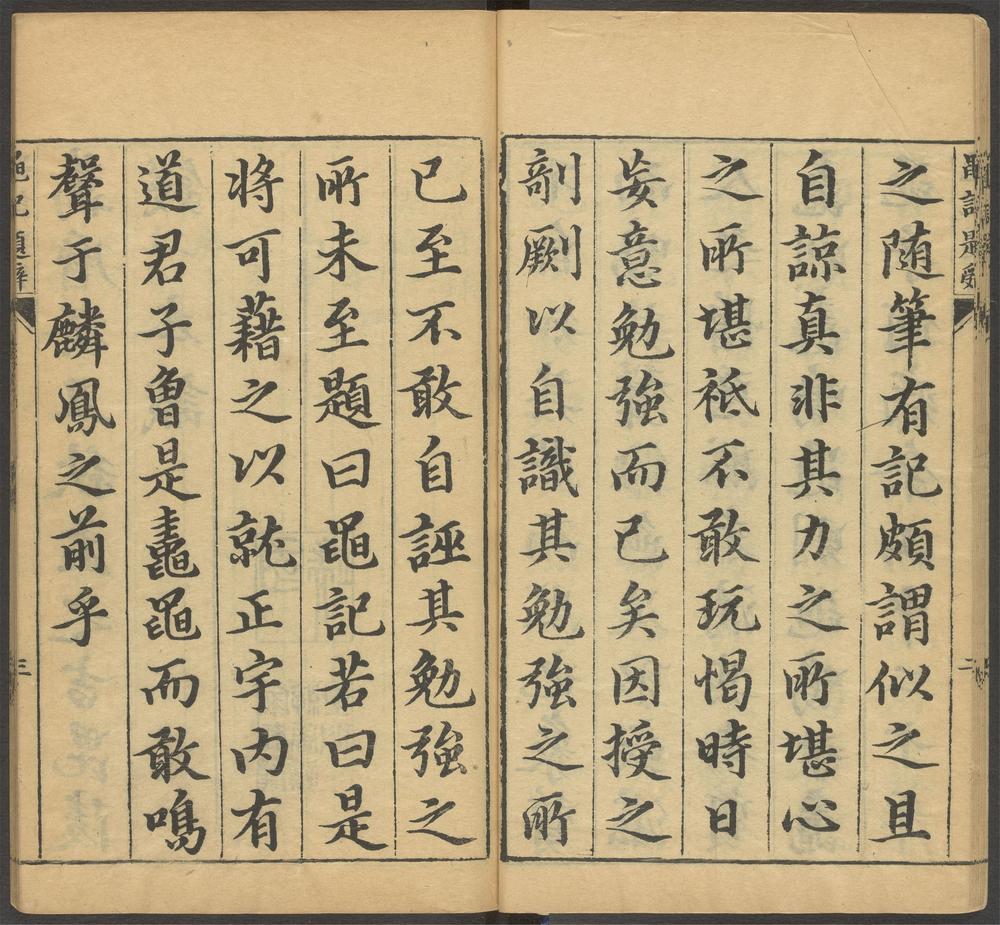 之随筆有記頗謂似之且
自諒真非其力之所堪心
之所堪祗不敢玩愒時日
妄意勉強而已矣因授之
剞劂以自識其勉強之所
已至不敢自誣其勉強之
所未至題曰黽記若曰是
將可藉之以就正宇内有
道君子魯是鼃黽而敢鳴
聲于麟鳳之前乎
三